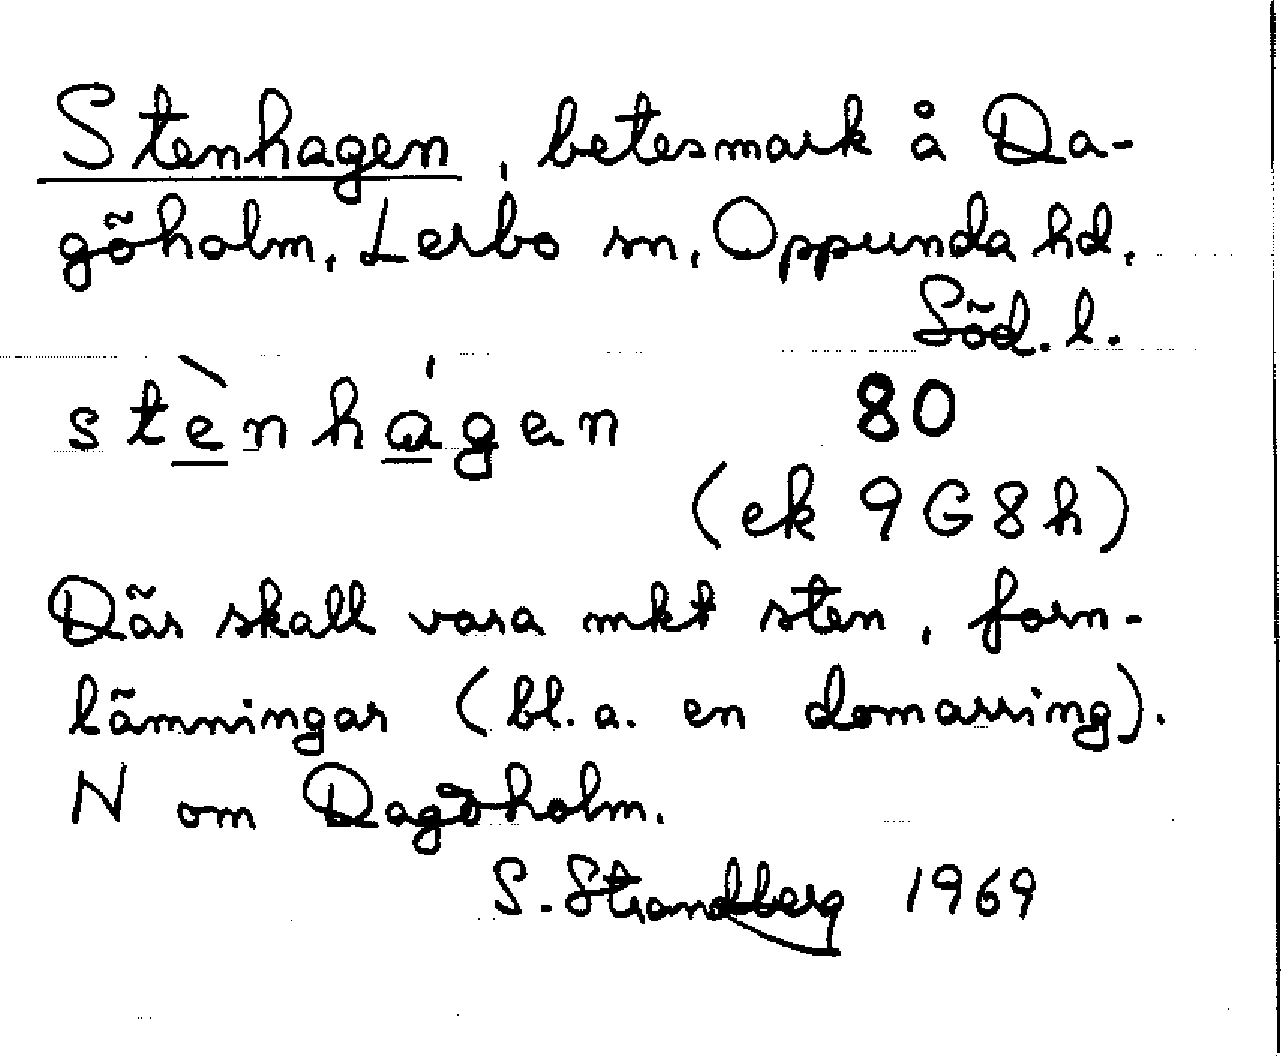 Stenhagen, betesmark å Da-
göholm, Lerbo sn, Oppunda hd,
Söd. l.
stènhágen 80
(ek 9G8h)
Där skall vara mkt sten, forn-
lämningar (bl.a. en domarring).
N om Dagöholm.
S. Strandberg 1969